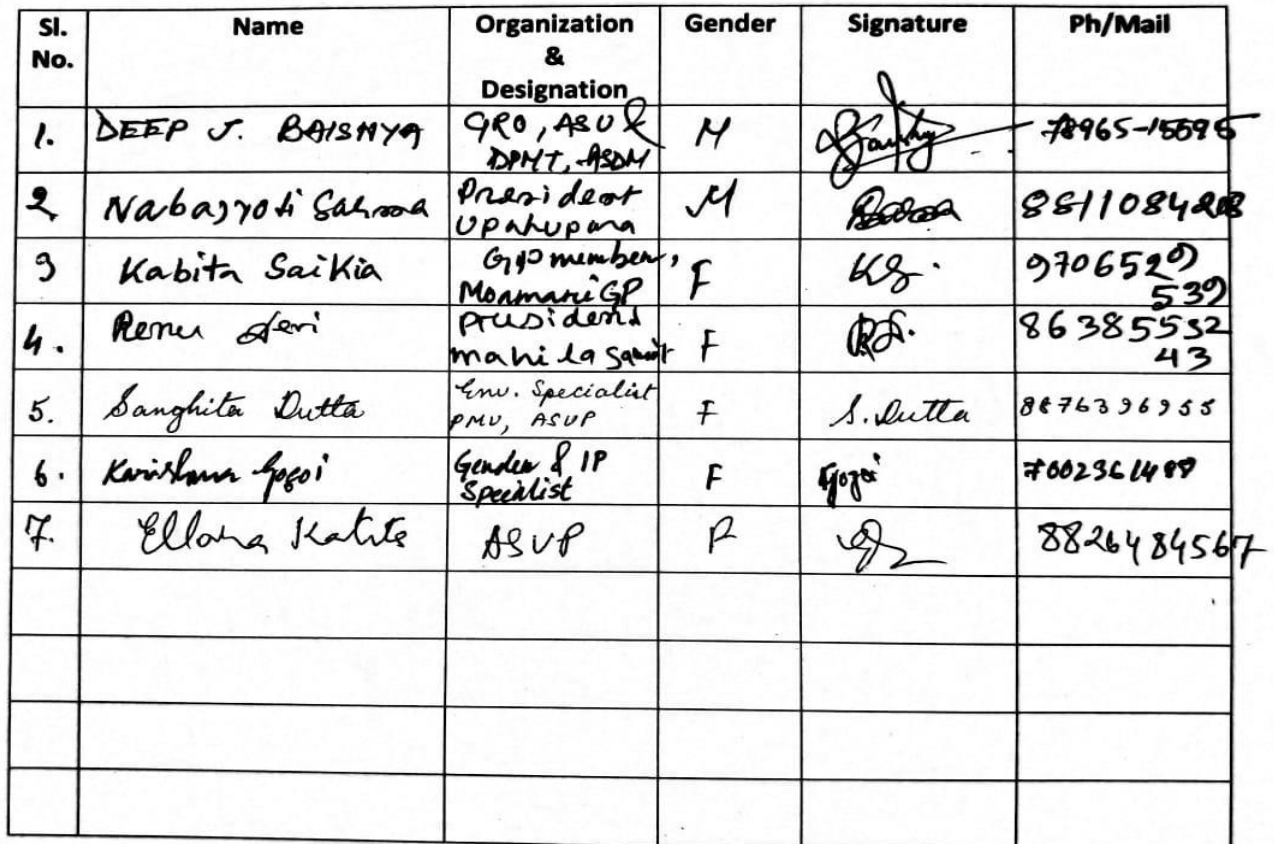 Sl. No. Name Organization & Designation Gender Signature Ph/Mail
1. DEEP J. BAISHYA GRO, ASU & DPMT, ASDM M 78965-15595
2 Nabajyoti Sarma President Upahupara M 8811084208
3 Kabita Saikia GP member, Mornari GP F KS. 9706529539
4. Renu Devi president mahila Samit F RD. 8638553243
5. Sanghita Dutta Env. Specialist PMU, ASUP F S. Dutta 8876396955
6. Karishma Gogoi Gender & IP Specialist F Gogoi 7002361489
7. Ellora Kalita ASUP F 8826484567